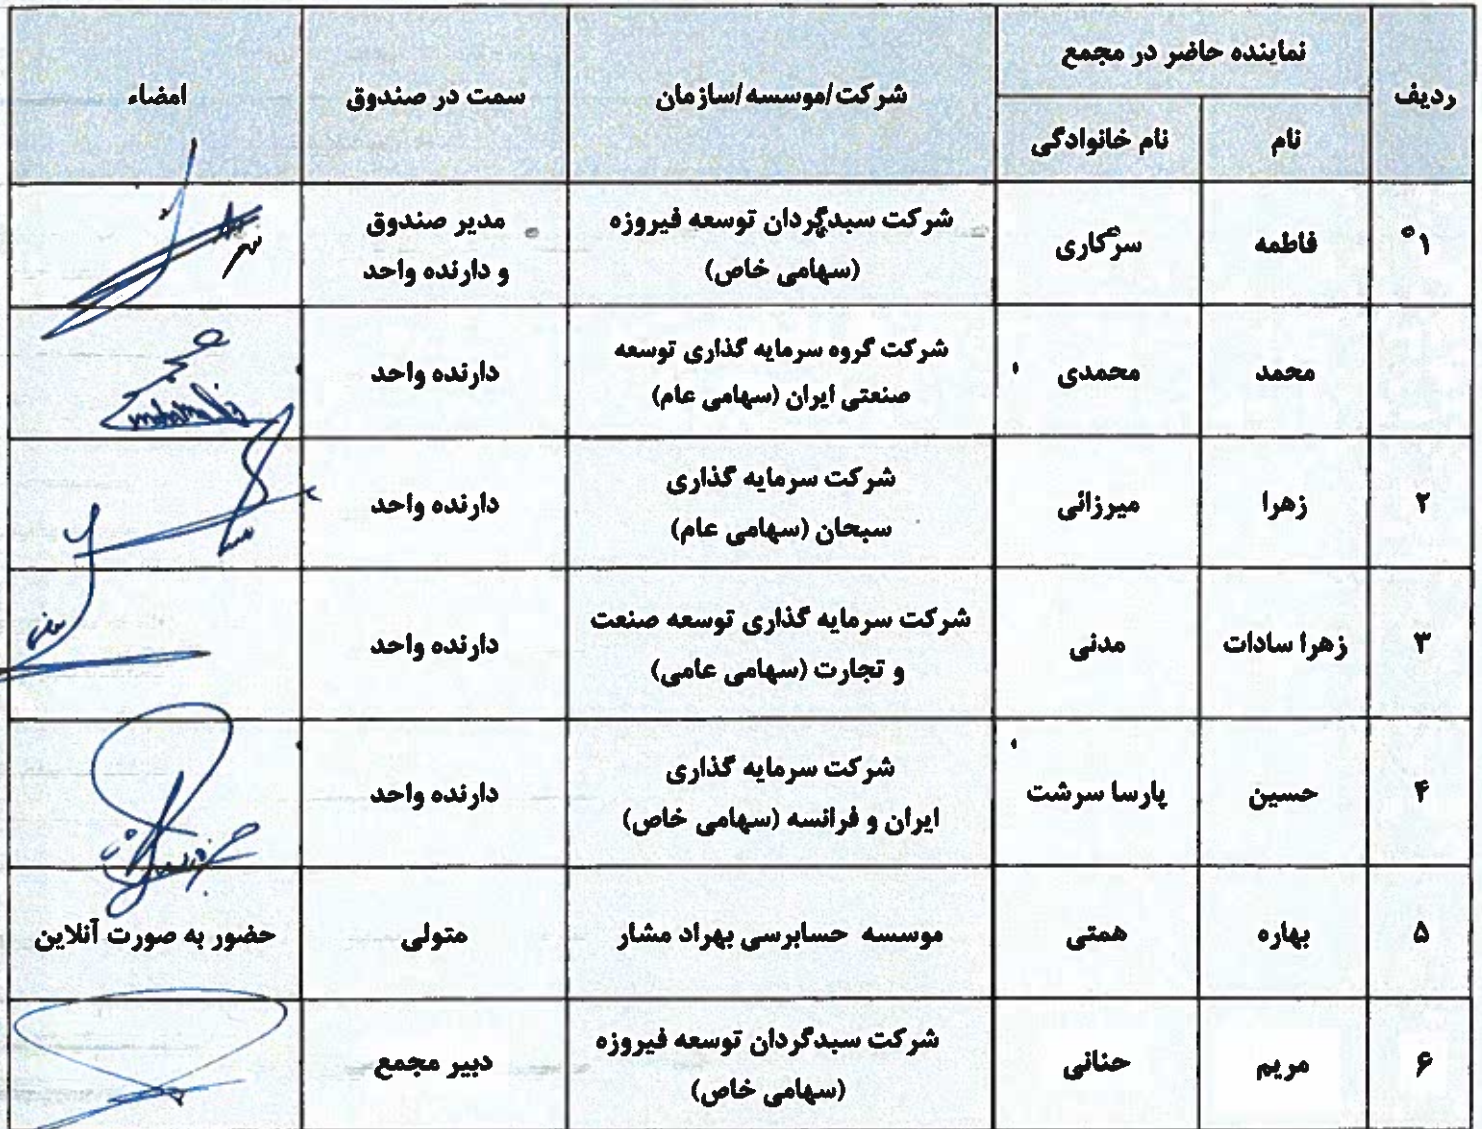 ردیف
نماینده حاضر در مجمع
نام
نام خانوادگی
شرکت/موسسه/سازمان
سمت در صندوق
امضاء
۱
فاطمه
سرکاری
شرکت سبدگردان توسعه فیروزه
(سهامی خاص)
مدیر صندوق
و دارنده واحد
محمد
محمدی
شرکت گروه سرمایه گذاری توسعه
صنعتی ایران (سهامی عام)
دارنده واحد
۲
زهرا
میرزائی
شرکت سرمایه گذاری
سبحان (سهامی عام)
دارنده واحد
۳
زهرا سادات
مدنی
شرکت سرمایه گذاری توسعه صنعت
و تجارت (سهامی عامی)
دارنده واحد
۴
حسین
پارسا سرشت
شرکت سرمایه گذاری
ایران و فرانسه (سهامی خاص)
دارنده واحد
۵
بهاره
همتی
موسسه حسابرسی بهراد مشار
متولی
حضور به صورت آنلاین
۶
مریم
حنانی
شرکت سبدگردان توسعه فیروزه
(سهامی خاص)
دبیر مجمع